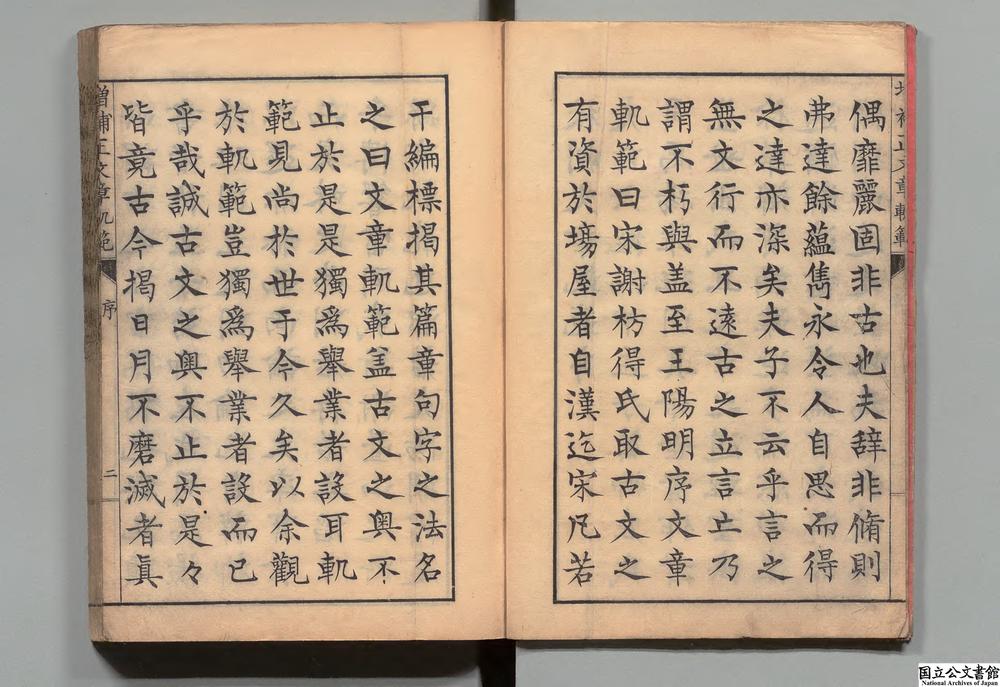 偶靡麗固非古也夫辭非脩則
弗達餘蘊雋永令人自思而得
之達亦深矣夫子不云乎言之
無文行而不遠古之立言亡乃
謂不朽與盖至王陽明序文章
軌範曰宋謝枋得氏取古文之
有資於場屋者自漢迄宋凡若
干編標揭其篇章句字之法名
之曰文章軌範盖古文之奥不
止於是是獨爲舉業者設耳軌
範見尚於世于今久矣以余觀
於軌範豈獨爲舉業者設而已
乎哉誠古文之奥不止於是々
皆竟古今揭日月不磨滅者眞
增補正文章軌範
序
二
国立公文書館
National Archives of Japan